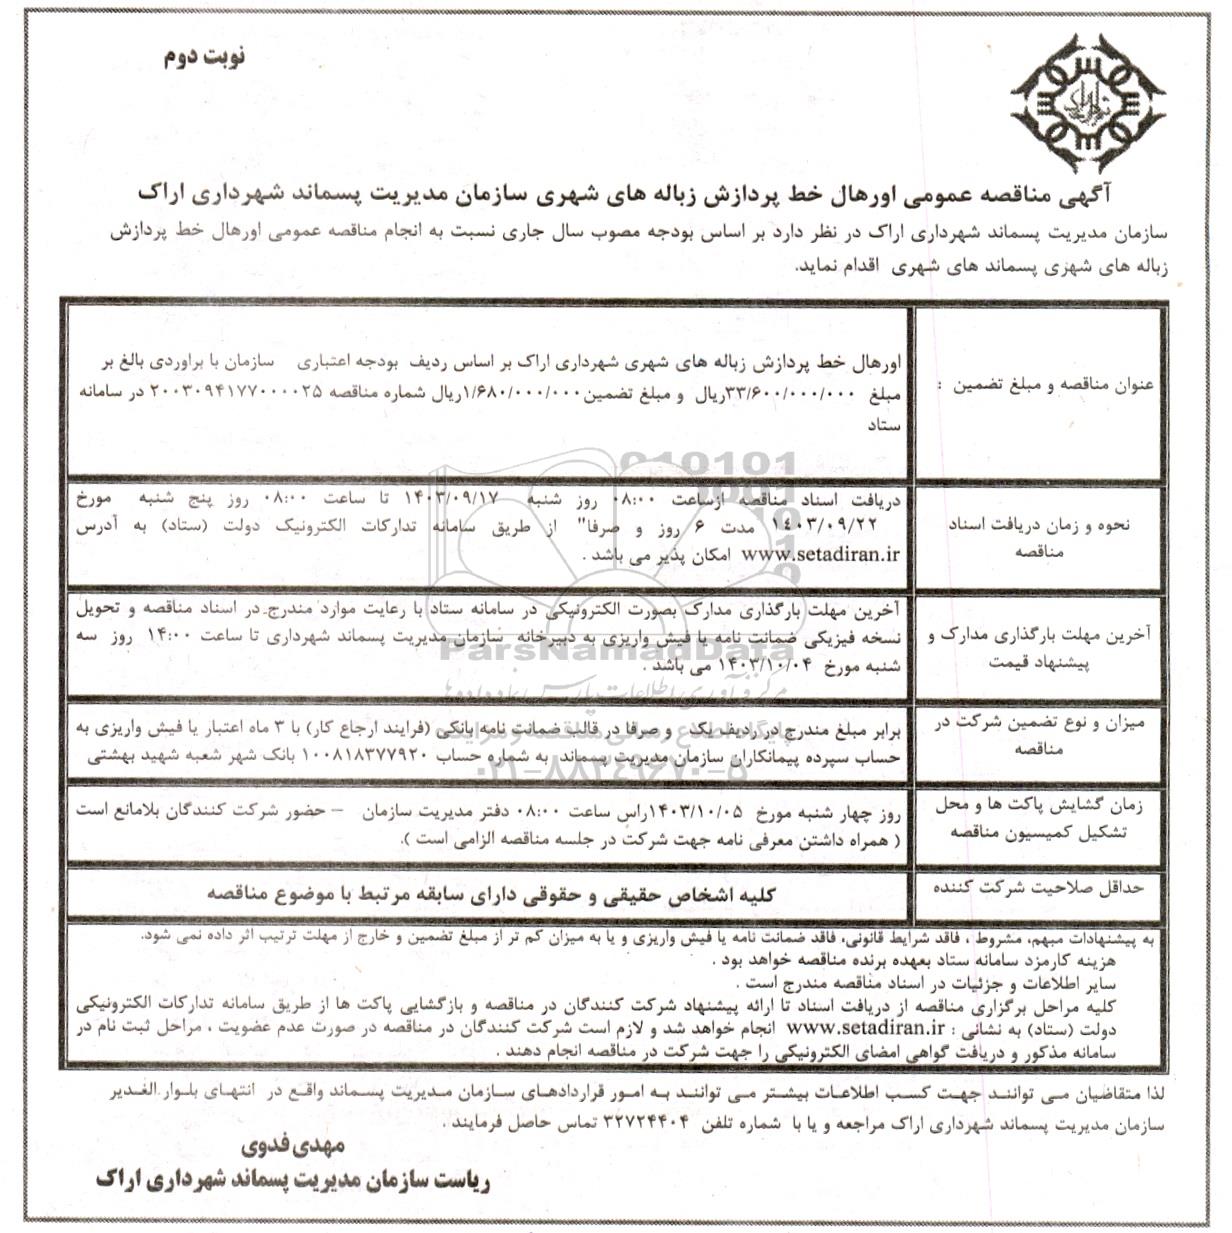 نوبت دوم
آگهی مناقصه عمومی اورهال خط پردازش زباله های شهری سازمان مدیریت پسماند شهرداری اراک
سازمان مدیریت پسماند شهرداری اراک در نظر دارد بر اساس بودجه مصوب سال جاری نسبت به انجام مناقصه عمومی اورهال خط پردازش
زباله های شهری پسماند های شهری اقدام نماید.
عنوان مناقصه و مبلغ تضمین :
اورهال خط پردازش زباله های شهری شهرداری اراک بر اساس ردیف بودجه اعتباری سازمان با براوردی بالغ بر
مبلغ ۳۳/۶۰۰/۰۰۰/۰۰۰ریال و مبلغ تضمین۱/۶۸۰/۰۰۰/۰۰۰ریال شماره مناقصه ۲۰۰۳۰۹۴۱۷۷۰۰۰۰۲۵ در سامانه
ستاد
نحوه و زمان دریافت اسناد
مناقصه
دریافت اسناد مناقصه ازساعت ۰۸:۰۰ روز شنبه ۱۴۰۳/۰۹/۱۷ تا ساعت ۰۸:۰۰ روز پنج شنبه مورخ
۱۴۰۳/۰۹/۲۲ مدت ۶ روز و صرفا" از طریق سامانه تدارکات الکترونیک دولت (ستاد) به آدرس
www.setadiran.ir امکان پذیر می باشد .
آخرین مهلت بارگذاری مدارک و
پیشنهاد قیمت
آخرین مهلت بارگذاری مدارک بصورت الکترونیکی در سامانه ستاد با رعایت موارد مندرج در اسناد مناقصه و تحویل
نسخه فیزیکی ضمانت نامه یا فیش واریزی به دبیرخانه سازمان مدیریت پسماند شهرداری تا ساعت ۱۴:۰۰ روز سه
شنبه مورخ ۱۴۰۳/۱۰/۰۴ می باشد .
میزان و نوع تضمین شرکت در
مناقصه
برابر مبلغ مندرج در ردیف یک و صرفا در قالب ضمانت نامه بانکی (فرایند ارجاع کار) با ۳ ماه اعتبار یا فیش واریزی به
حساب سپرده پیمانکاران سازمان مدیریت پسماند به شماره حساب ۱۰۰۸۱۸۳۷۷۹۲۰ بانک شهر شعبه شهید بهشتی
زمان گشایش پاکت ها و محل
تشکیل کمیسیون مناقصه
روز چهار شنبه مورخ ۱۴۰۳/۱۰/۰۵راس ساعت ۰۸:۰۰ دفتر مدیریت سازمان – حضور شرکت کنندگان بلامانع است
( همراه داشتن معرفی نامه جهت شرکت در جلسه مناقصه الزامی است ).
حداقل صلاحیت شرکت کننده
کلیه اشخاص حقیقی و حقوقی دارای سابقه مرتبط با موضوع مناقصه
به پیشنهادات مبهم، مشروط ، فاقد شرایط قانونی، فاقد ضمانت نامه یا فیش واریزی و یا به میزان کم تر از مبلغ تضمین و خارج از مهلت ترتیب اثر داده نمی شود.
هزینه کارمزد سامانه ستاد بعهده برنده مناقصه خواهد بود .
سایر اطلاعات و جزئیات در اسناد مناقصه مندرج است .
کلیه مراحل برگزاری مناقصه از دریافت اسناد تا ارائه پیشنهاد شرکت کنندگان در مناقصه و بازگشایی پاکت ها از طریق سامانه تدارکات الکترونیکی
دولت (ستاد) به نشانی : www.setadiran.ir انجام خواهد شد و لازم است شرکت کنندگان در مناقصه در صورت عدم عضویت ، مراحل ثبت نام در
سامانه مذکور و دریافت گواهی امضای الکترونیکی را جهت شرکت در مناقصه انجام دهند .
لذا متقاضیان می توانند جهت کسب اطلاعات بیشتر می توانند به امور قراردادهای سازمان مدیریت پسماند واقع در انتهای بلوار الغدیر
سازمان مدیریت پسماند شهرداری اراک مراجعه و یا با شماره تلفن ۳۲۷۲۴۴۰۴ تماس حاصل فرمایند .
مهدی فدوی
ریاست سازمان مدیریت پسماند شهرداری اراک
ParsNamadData
۰۲۱-۸۸۳۴۹۶۷۰-۵